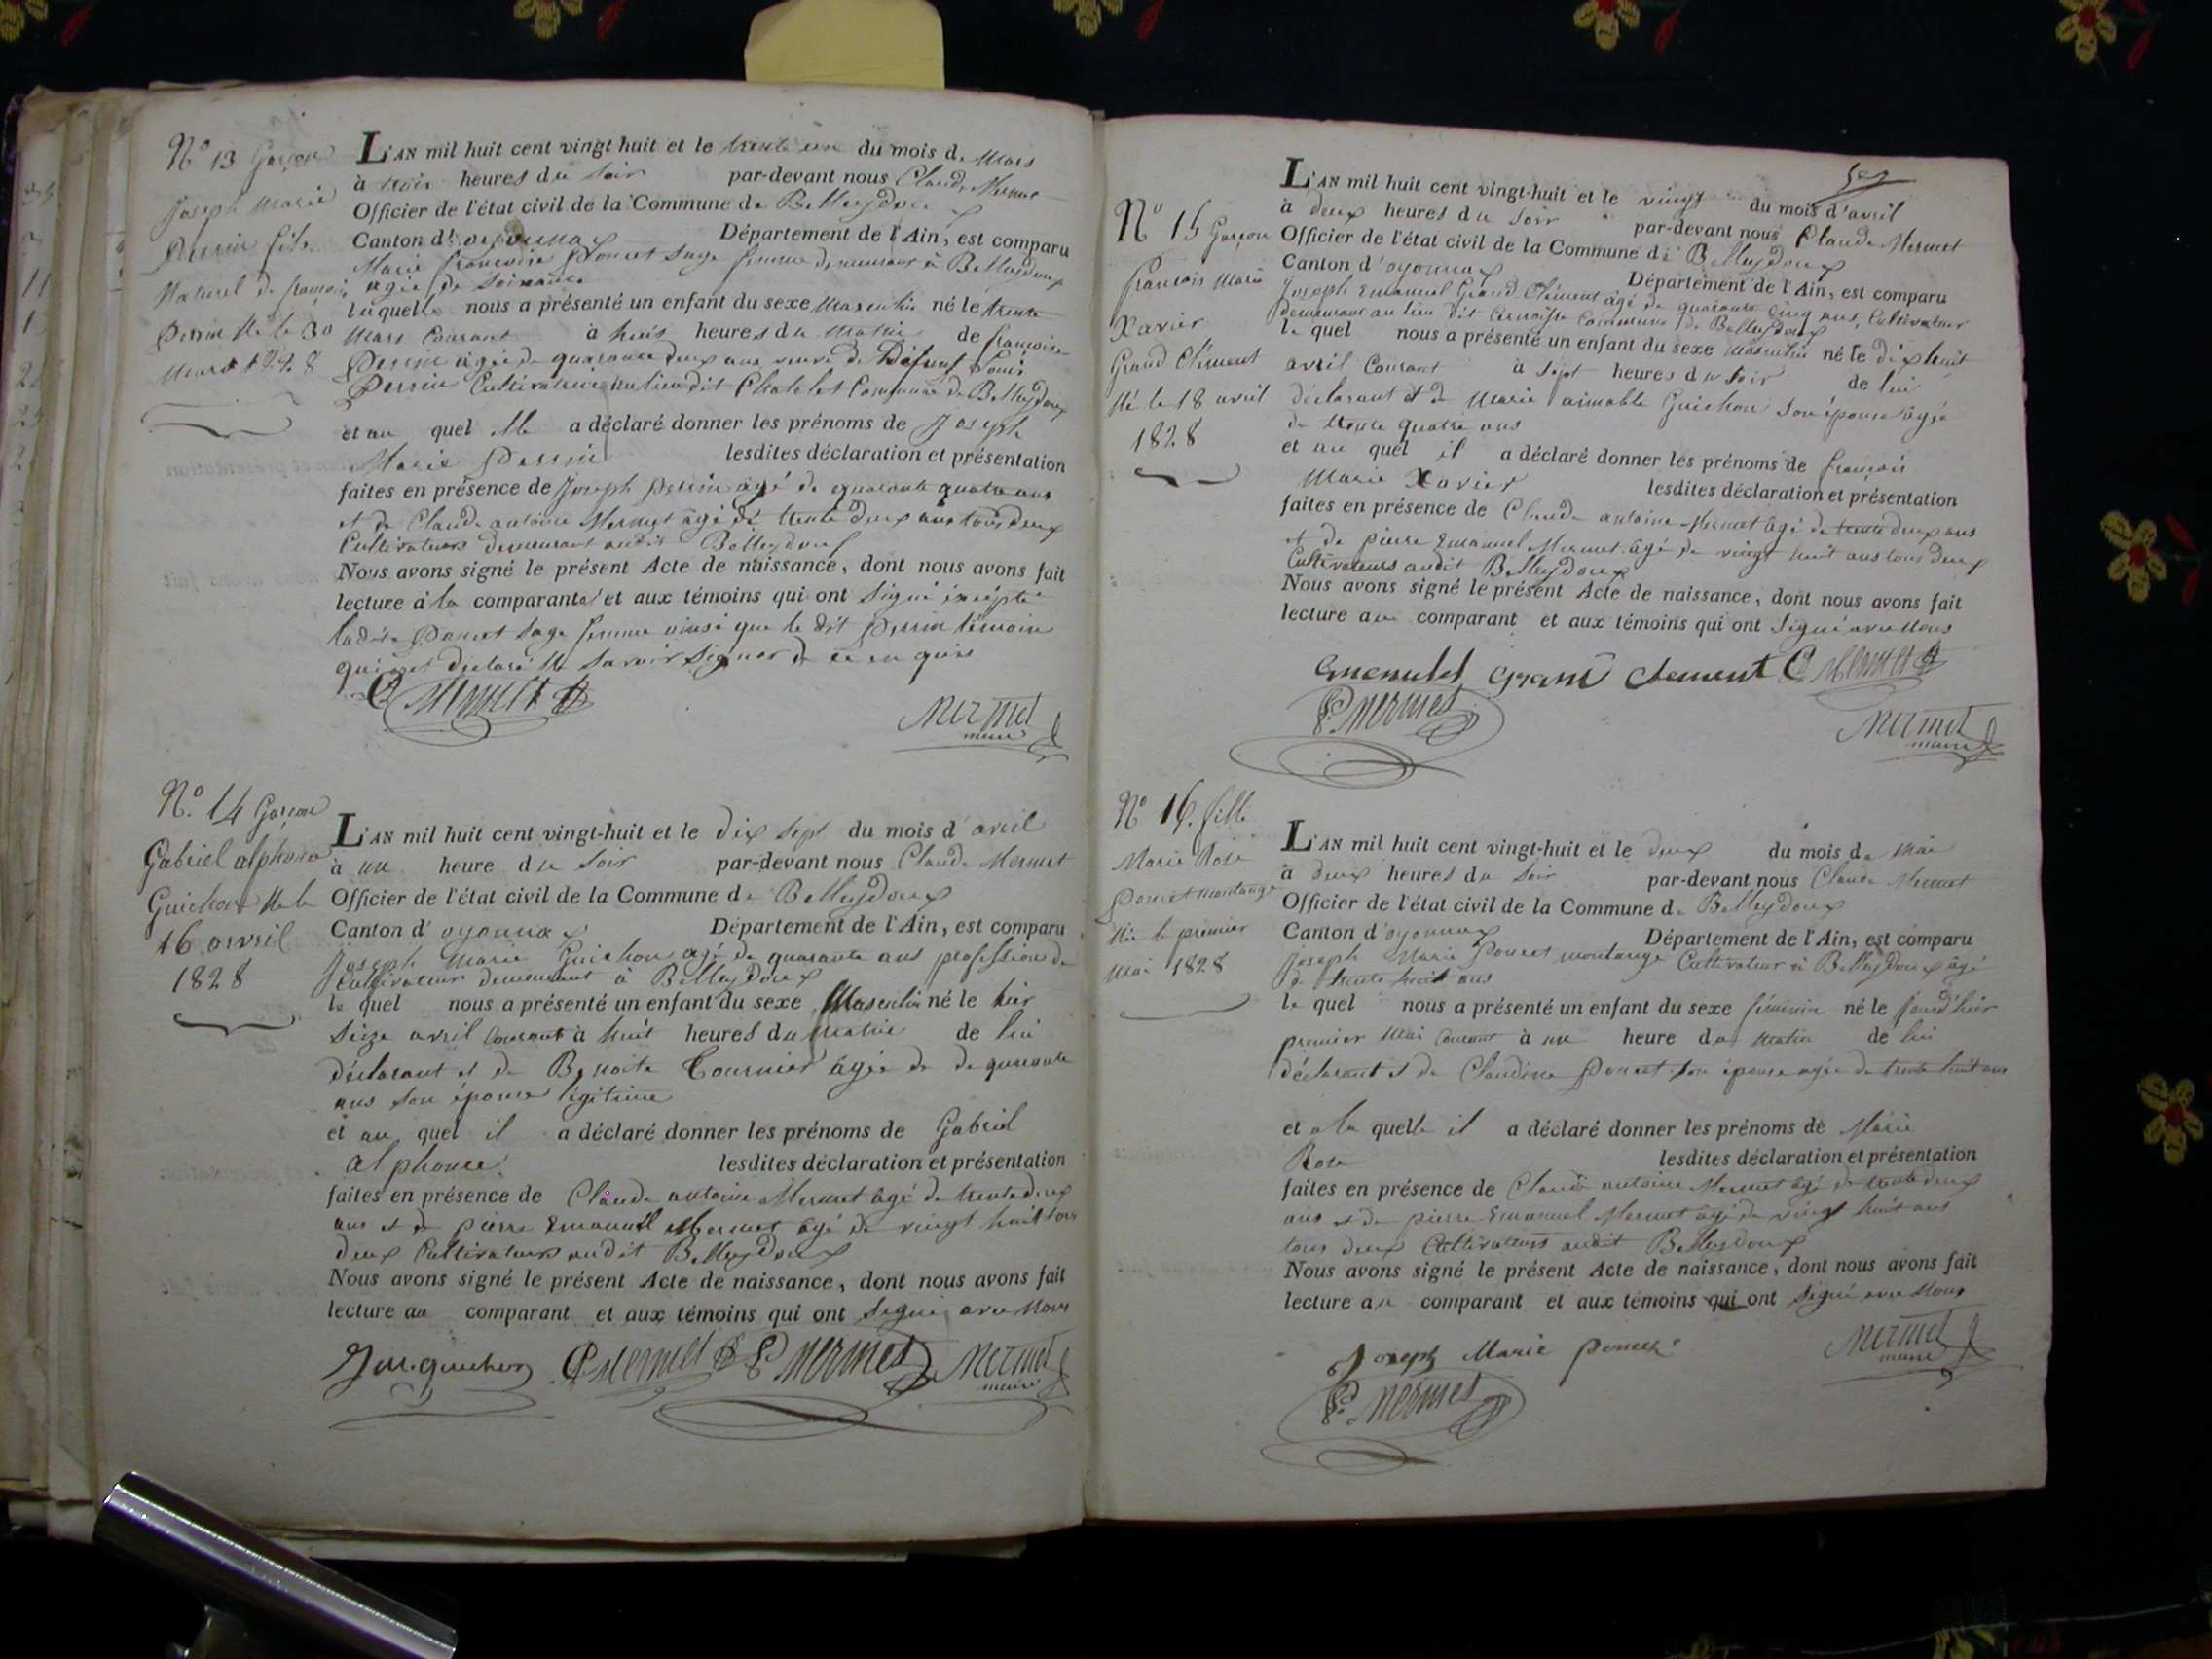 N.° 13 Garçon
Joseph Marie
Perrin fils
Naturel de françoise
Perrin Né le 30
Mars 1828
L'AN mil huit cent vingt huit et le trente un du mois de Mars
à trois heures du soir par-devant nous Claude Mermet
Officier de l'état civil de la Commune de Belleydoux
Canton d'oyonnax Département de l'Ain, est comparu
Marie françoise Poncet sage femme demeurant à Belleydoux
agée de soixante
laquelle nous a présenté un enfant du sexe Masculin né le trente
Mars Courant à huit heures du Matin de françoise
Perrin âgée de quarante deux ans veuve de Défunt Louis
Perrin Cultivatrice au lieu dit Chatelet Commune de Belleydoux
et au quel elle a déclaré donner les prénoms de Joseph
Marie Perrin lesdites déclaration et présentation
faites en présence de Joseph Perrin âgé de quarante quatre ans
et de Claude antoine Mermet âgé de trente deux ans tous deux
Cultivateurs demeurant audit Belleydoux
Nous avons signé le présent Acte de naissance, dont nous avons fait
lecture à la comparante et aux témoins qui ont signé excepté
ladite Poncet sage femme ainsi que le dit Perrin témoin
qui ont déclaré ne savoir signer de ce enquis
C Mermet
Mermet
maire
N.° 14 Garçon
Gabriel alphonse
Guichon Né le
16 avril
1828
L'AN mil huit cent vingt-huit et le dix sept du mois d'avril
à un heure du soir par-devant nous Claude Mermet
Officier de l'état civil de la Commune de Belleydoux
Canton d'oyonnax Département de l'Ain, est comparu
Joseph Marie Guichon agé de quarante ans profession de
Cultivateur demeurant à Belleydoux
le quel nous a présenté un enfant du sexe Masculin né le hier
seize avril Courant à huit heures du matin de lui
déclarant et de Benoite Tournier âgée de de quarante
ans son épouse légitime
et au quel il a déclaré donner les prénoms de Gabriel
alphonse lesdites déclaration et présentation
faites en présence de Claude antoine Mermet âgé de trente deux
ans et de pierre Emanuel Mermet âgé de vingt huit tous
deux Cultivateurs audit Belleydoux
Nous avons signé le présent Acte de naissance, dont nous avons fait
lecture au comparant et aux témoins qui ont signé avec Nous
J M. guichon C Mermet P. Mermet Mermet
maire
N° 15 Garçon
françois Marie
Xavier
Grand Clément
Né le 18 avril
1828
L'AN mil huit cent vingt-huit et le vingt du mois d'avril
à deux heures du soir par-devant nous Claude Mermet
Officier de l'état civil de la Commune de Belleydoux
Canton d'oyonnax Département de l'Ain, est comparu
Joseph Emanuel Grand Clément âgé de quarante cinq ans, Cultivateur
demeurant au lieu dit Commune de Belleydoux
le quel nous a présenté un enfant du sexe masculin né le dix huit
avril Courant à sept heures du soir de lui
déclarant et de Marie aimable Guichon son épouse âgée
de trente quatre ans
et au quel il a déclaré donner les prénoms de françois
Marie Xavier lesdites déclaration et présentation
faites en présence de Claude antoine Mermet âgé de trente deux ans
et de pierre Emanuel Mermet âgé de vingt huit ans tous deux
Cultivateurs audit Belleydoux
Nous avons signé le présent Acte de naissance, dont nous avons fait
lecture au comparant et aux témoins qui ont signé avec Nous
Grand Clement C Mermet
P. Mermet
Mermet
maire
N° 16. fille
Marie Rose
Poncet montange
Née le premier
Mai 1828
L'AN mil huit cent vingt-huit et le deux du mois de Mai
à deux heures du soir par-devant nous Claude Mermet
Officier de l'état civil de la Commune de Belleydoux
Canton d'oyonnax Département de l'Ain, est comparu
Joseph Marie Poncet montange Cultivateur à Belleydoux âgé
de trente huit ans
le quel nous a présenté un enfant du sexe féminin né le jourd'hier
premier Mai Courant à un heure du Matin de lui
déclarant et de Claudine Poncet son épouse agée de trente huit ans
et a la quelle il a déclaré donner les prénoms de Marie
Rose lesdites déclaration et présentation
faites en présence de Claude antoine Mermet âgé de trente deux
ans et de pierre Emanuel Mermet âgé de vingt huit ans
tous deux Cultivateurs audit Belleydoux
Nous avons signé le présent Acte de naissance, dont nous avons fait
lecture au comparant et aux témoins qui ont signé avec Nous
Joseph Marie Poncet
P. Mermet
Mermet
maire